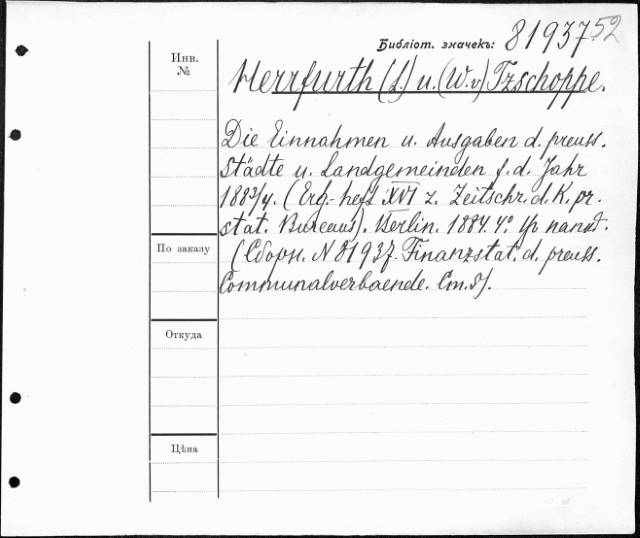 Библіот. значекъ: 81937 52
Инв. №
Herrfurth (L.) u. (W. v) Tzschoppe.
Die Einnahmen u. Ausgaben d. preuss.
Städte u. Landgemeinden f. d. Jahr
1883/4. (Erg.-heft XVI z. Zeitschr. d. K. pr.
stat. Bureaus). Berlin. 1884. 4°.
По заказу
(Сборн. N 81937. Finanzstat. d. preuss.
Communalverbaende.
Откуда
Цѣна